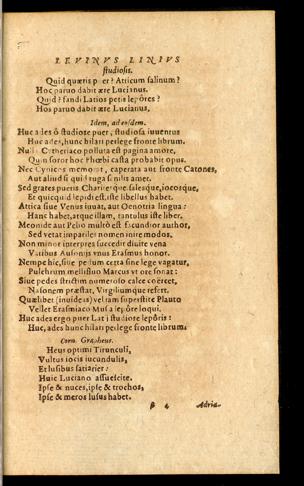 LEVINVS LINIVS
studiosis.
Quid quæris puer? Atticum salinum?
Hoc paruo dabit ære Lucianus.
Quid? fandi Latios petis lepôres?
Hos paruo dabit ære Lucianus,
Idem, ad eosdem.
Huc ades ô studiose puer, studiosa iuuentus
Huc ades, hunc hilari perlege fronte librum.
Nulla Cytheriaco polluta est pagina amore,
Quin soror hoc Phœbi casta probabit opus.
Nec Cynicos memorat, caperata aut fronte Catones,
Aut aliud si quid ruga senilis amet.
Sed grates pueris Charitesque, salesque, iocosque,
Et quicquid lepidi est, iste libellus habet.
Attica siue Venus iuuat, aut Oenotria lingua:
Hanc habet, atque illam, tantulus iste liber.
Meonide aut Pelio multò est fæcundior author,
Sed vetat imparileis nomen inire modos.
Non minor interpres succedit diuite vena
Vatibus Ausoniis vnus Erasmus honor.
Nempe hic, siue pedum certa sine lege vagatur,
Pulchrum mellifluo Marcus vt ore sonat:
Siue pedes strictim numeroso calce coërcet,
Nasonem præstat, Virgiliumque refert.
Quælibet (inuideas) vel iam superstite Plauto
Vellet Erasmiaco Musa lepôre loqui.
Huc ades ergo puer Latii studiose lepôris:
Huc, ades hunc hilari perlege fronte librum.
Corn. Grapheus.
Heus optimi Tirunculi,
Vultus iocis iucundulis,
Et lusibus satiarier:
Huic Luciano assuescite.
Ipse & nuces, ipse & trochos,
Ipse & meros lusus habet.
Adria-